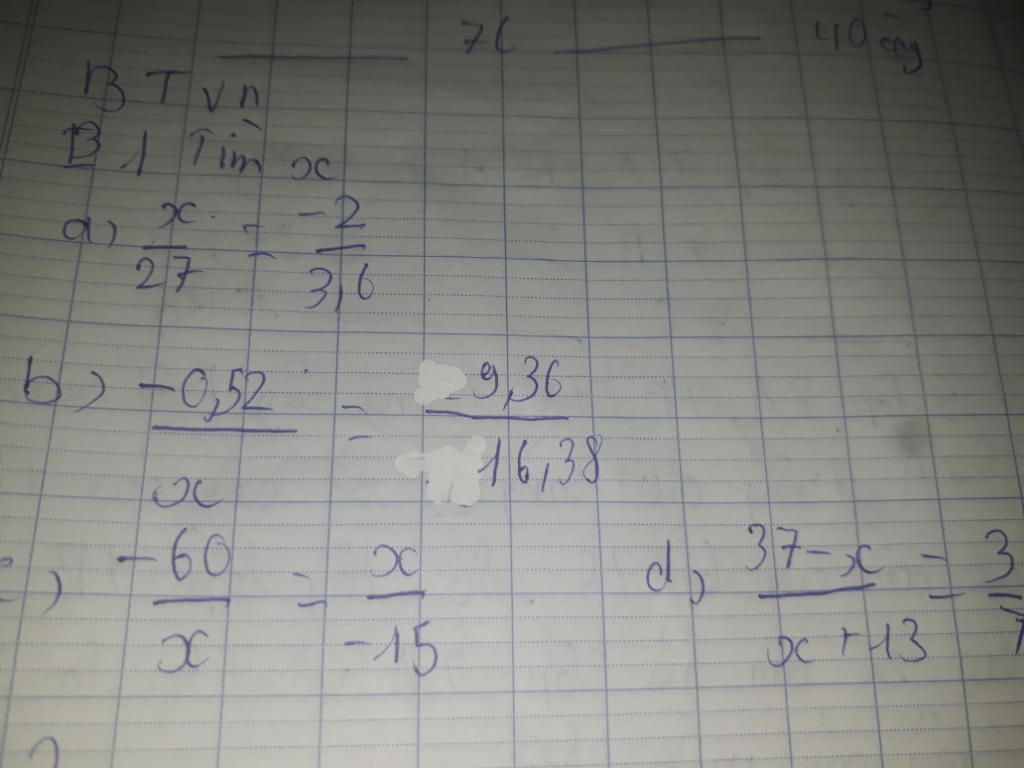 76 40 cây
BTVN
B1 Tìm x
a) x/27 = -2/3,6
b) -0,52/x = 9,36/16,38
c) -60/x = x/-15 d) 37-x/x+13 = 3/7